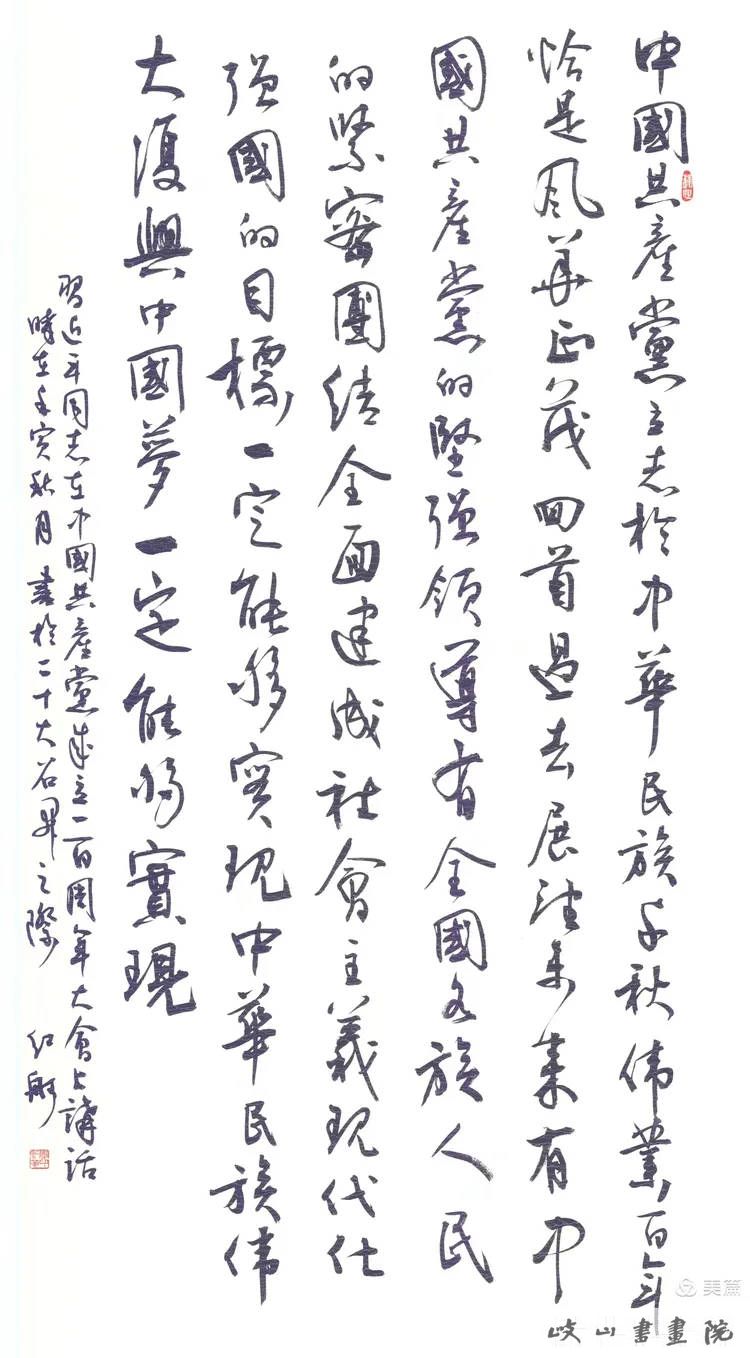 中國共產黨立志於中華民族千秋伟業百年
恰是風華正茂回首過去展望未來有中
國共產黨的堅强領導有全國各族人民
的緊密團结全面建成社會主義現代化
强國的目標一定能够实現中華民族伟
大復興中國夢一定能够實現
習近平同志在中國共產黨成立一百周年大會上講話
時在壬寅秋月書於二十大召開之際 红
美篇
岐山書畫院